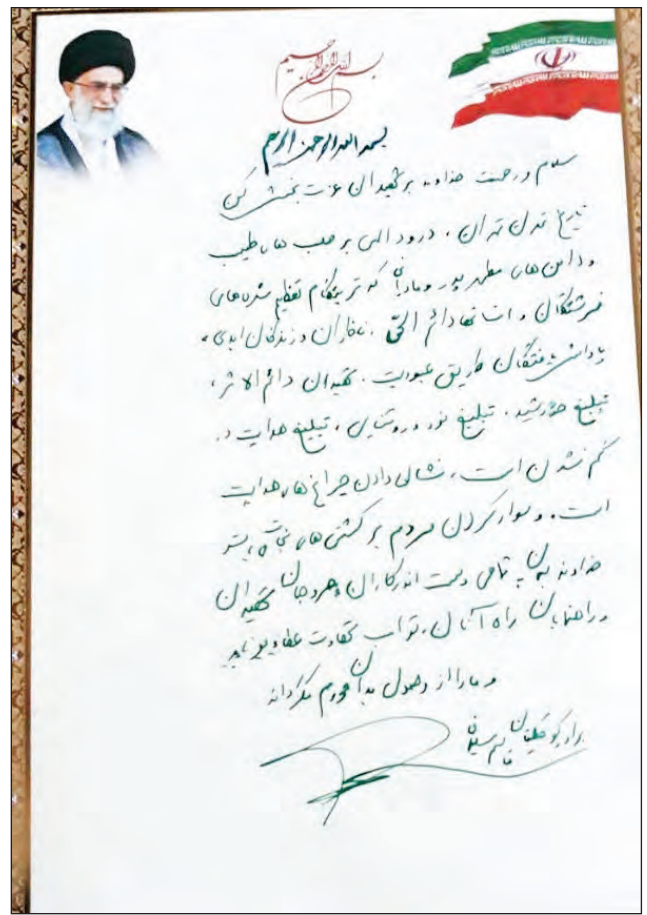 بسم الله الرحمن الرحیم
بسم الله الرحمن الرحیم
سلام و رحمت خداوند بر شهیدان عزت بخش کن
تاریخ تمدن تهران، درود الهی بر صلب های طیب
و دامن های مطهر پدر و مادرانی که تربیتگاه تعظیم شده های
فرشتگان و انسانها دائم الحی، ناظران و زندگان ابدی،
طریق عبودیت. شهیدان دائم الاثر،
تبلیغ خورشید، تبلیغ نور و روشنایی، تبلیغ هدایت در
گم شدن است، نشانی دادن چراغ های هدایت
است. و سوار کردن مردم بر کشتی های نجات
خداوند به تمامی دست اندرکاران شهیدان
و راهنمایان راه آنان، ثواب شهادت عطا
و ما را از وصول بدان محروم مگرداند
برادر کوچکتان
قاسم سلیمانی